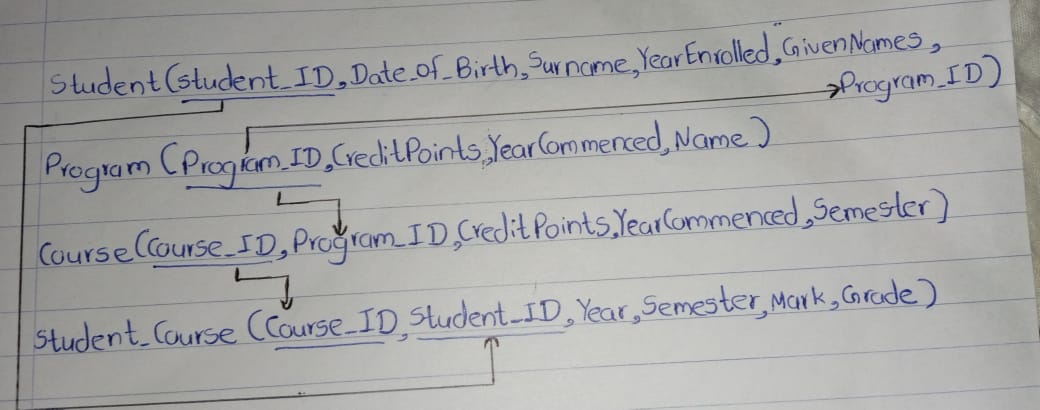 Student(Student_ID, Date_of_Birth, Surname, YearEnrolled, GivenNames,
Program_ID)
Program (Program_ID, CreditPoints, YearCommenced, Name)
Course(Course_ID, Program_ID, CreditPoints, YearCommenced, Semester)
Student_Course (Course_ID, Student_ID, Year, Semester, Mark, Grade)